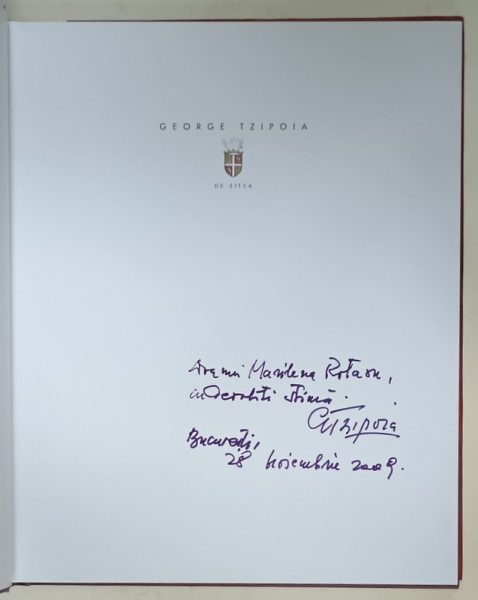 GEORGE TZIPOIA
DE ZITSA
Doamnei Marilena Rotaru,
cu deosebită stimă.
GTzipoia
București,
28 Noiembrie 2009.